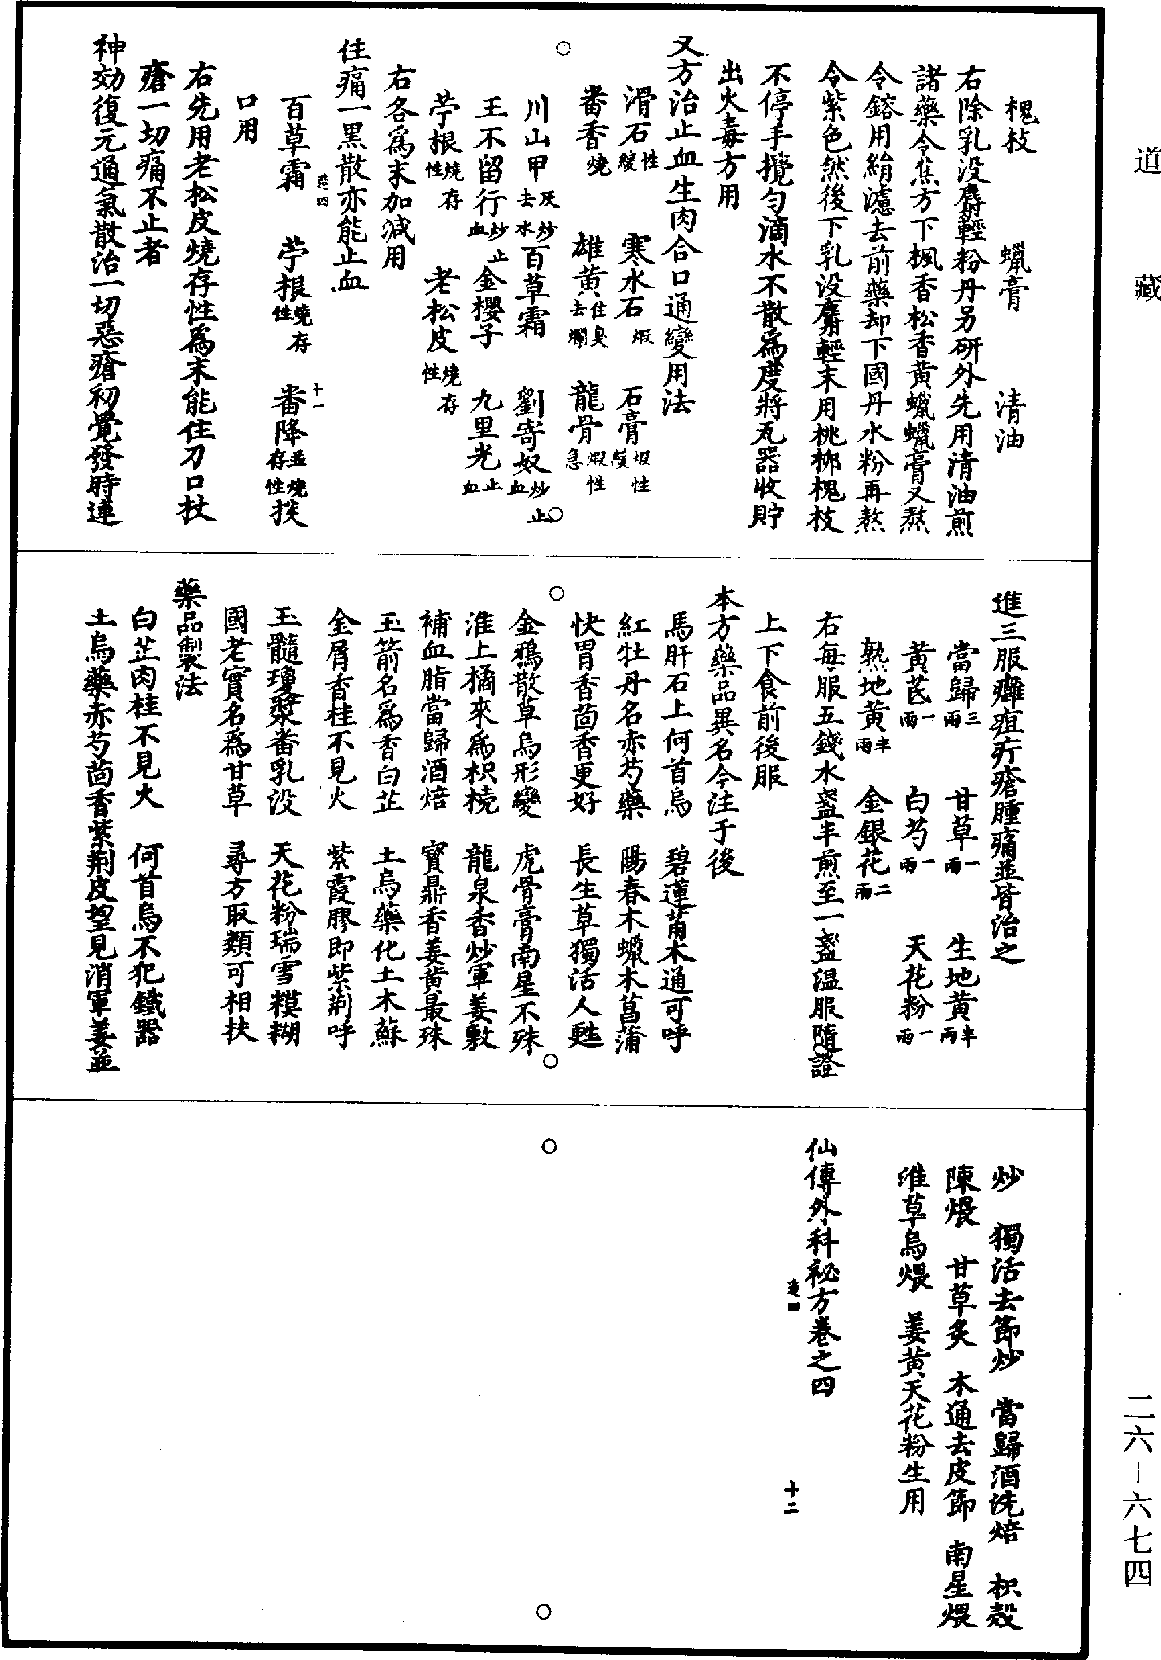 道藏
槐枝 蠟膏 清油
右除乳没麝輕粉丹另研外先用清油煎
諸藥令焦方下楓香松香黃蠟蠟膏又熬
令鎔用絹濾去前藥却下國丹水粉再熬
令紫色然後下乳没麝輕末用桃柳槐枝
不停手攪勻滴水不散為度將瓦器收貯
出火毒方用
又方治止血生肉合口通變用法
滑石性緩 寒水石煆 石膏煆性緩
番香燒 雄黃住臭去爛 龍骨煆性急
川山甲灰炒去水 百草霜 劉寄奴炒止血
王不留行炒止血 金櫻子 九里光止血
苧根燒存性 老松皮燒存性
右各為末加減用
住痛一黑散亦能止血
百草霜 苧根燒存性 番降並燒存性 挨
口用
右先用老松皮燒存性為末能住刀口杖
瘡一切痛不止者
神効復元通氣散治一切惡瘡初覺發時連
十一
進三服癰疽疔瘡腫痛並皆治之
當歸三兩 甘草一兩 生地黃半兩
黃芪一兩 白芍一兩 天花粉一兩
熟地黃半兩 金銀花二兩
右每服五錢水盞半煎至一盞温服隨證
上下食前後服
本方藥品異名今注于後
馬肝石上何首烏 碧蓮莆木通可呼
紅牡丹名赤芍藥 陽春木蠟木菖蒲
快胃香茴香更好 長生草獨活人甦
金鴉散草烏形變 虎骨膏南星不殊
淮上橘來為枳橈 龍泉香炒軍姜敷
補血脂當歸酒焙 寳鼎香姜黄最殊
玉箭名為香白芷 土烏藥化土木蘇
金屑香桂不見火 紫霞膠即紫荆呼
玉髓瓊漿番乳没 天花粉瑞雪糢糊
國老實名為甘草 尋方取類可相扶
藥品製法
白芷肉桂不見火 何首烏不犯鐵器
土烏藥赤芍茴香紫荆皮望見消軍姜並
炒 獨活去節炒 當歸酒洗焙 枳殼
陳煨 甘草炙 木通去皮節 南星煨
淮草烏煨 姜黃天花粉生用
仙傳外科祕方卷之四
十二
二六–六七四